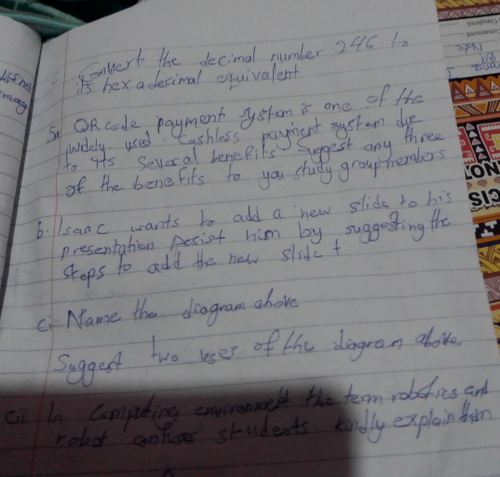 c Convert the decimal number 246 to
its hexadecimal equivalent
5a QR code payment system is one of the
widely used cashless payment system due
to its several benefits suggest any three
of the benefits to you study group members
b. Isaac wants to add a new slide to his
presentation Assist him by suggesting the
steps to add the new slide
ci Name the diagram above
Suggest two uses of the diagram above.
cii In computing environment the term robotics and
robot confuse students kindly explain them